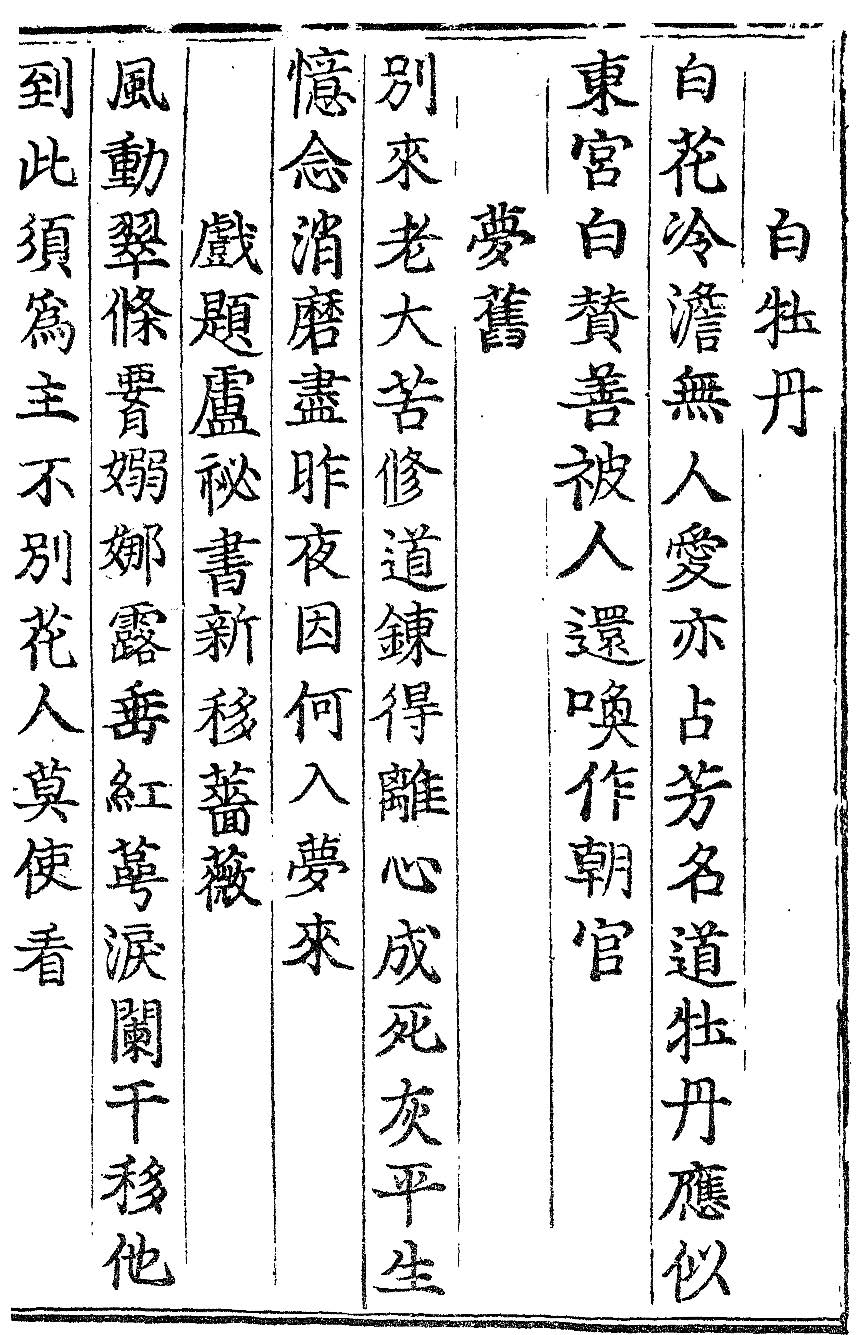 白牡丹
白花冷澹無人愛亦占芳名道牡丹應似
東宮白賛善被人還喚作朝官
夢舊
別來老大苦修道鍊得離心成死灰平生
憶念消磨盡昨夜因何入夢來
戲題盧祕書新移薔薇
風動翠條腰嫋娜露垂紅萼淚闌干移他
到此須爲主不別花人莫使看